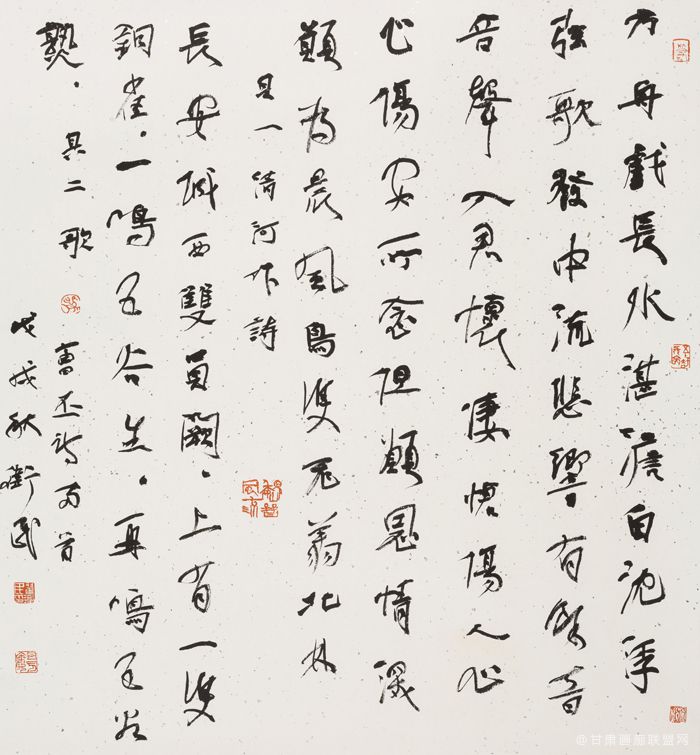 方舟戲長水湛澹自沈浮
弦歌發中流悲響有餘音
音聲入君懷凄愴傷人心
心傷安所念但願恩情深
願為晨風鳥雙飛翔北林
其一清河作詩
長安城西雙員闕、上有一雙
銅雀、一鳴五谷生、再鳴五谷
熟、其二歌
曹丕詩兩首
戊戌秋衛民